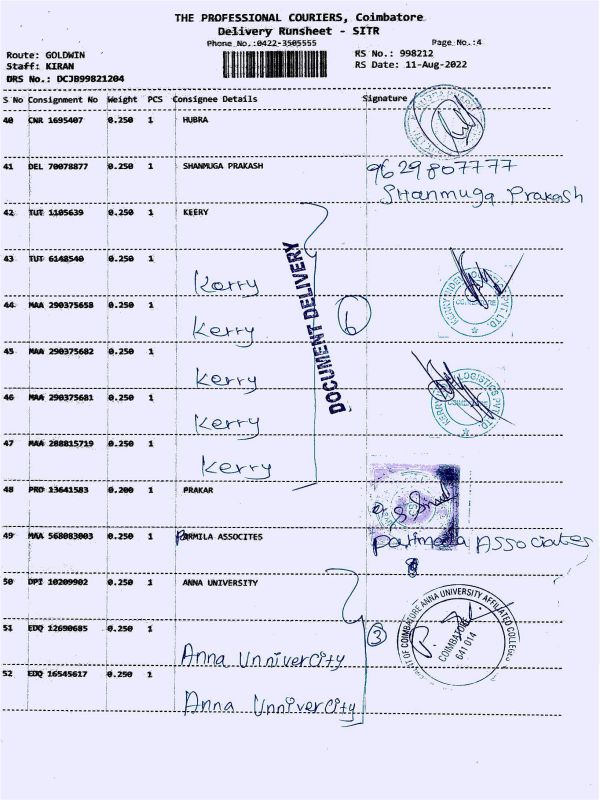 THE PROFESSIONAL COURIERS, Coimbatore
Delivery Runsheet - SITR
Phone No.:0422-3505555 Page No.:4
Route: GOLDWIN RS No.: 998212
Staff: KIRAN RS Date: 11-Aug-2022
DRS No.: DCJB99821204
S No Consignment No Weight PCS Consignee Details Signature
40 CNR 1695407 0.250 1 HUBRA
41 DEL 70078877 0.250 1 SHANMUGA PRAKASH 9629807777
Shanmuga Prakash
42 TUT 1105639 0.250 1 KEERY
43 TUT 6148540 0.250 1 Kerry
44 MAA 290375658 0.250 1 Kerry
45 MAA 290375682 0.250 1 Kerry
46 MAA 290375681 0.250 1 Kerry
47 MAA 288815719 0.250 1 Kerry
DOCUMENT DELIVERY
6
COIMBATORE
LOGISTICS PVT LTD.
48 PRO 13641583 0.200 1 PRAKAR
49 MAA 568083003 0.250 1 PARMILA ASSOCITES Parimala Associates
50 DPI 10209902 0.250 1 ANNA UNIVERSITY
51 EDQ 12690685 0.250 1 Anna Unnivercity
52 EDQ 16545617 0.250 1 Anna Unnivercity
3
OF COIMBATORE ANNA UNIVERSITY AFFILIATED COLLEGES
COIMBATORE
641 014